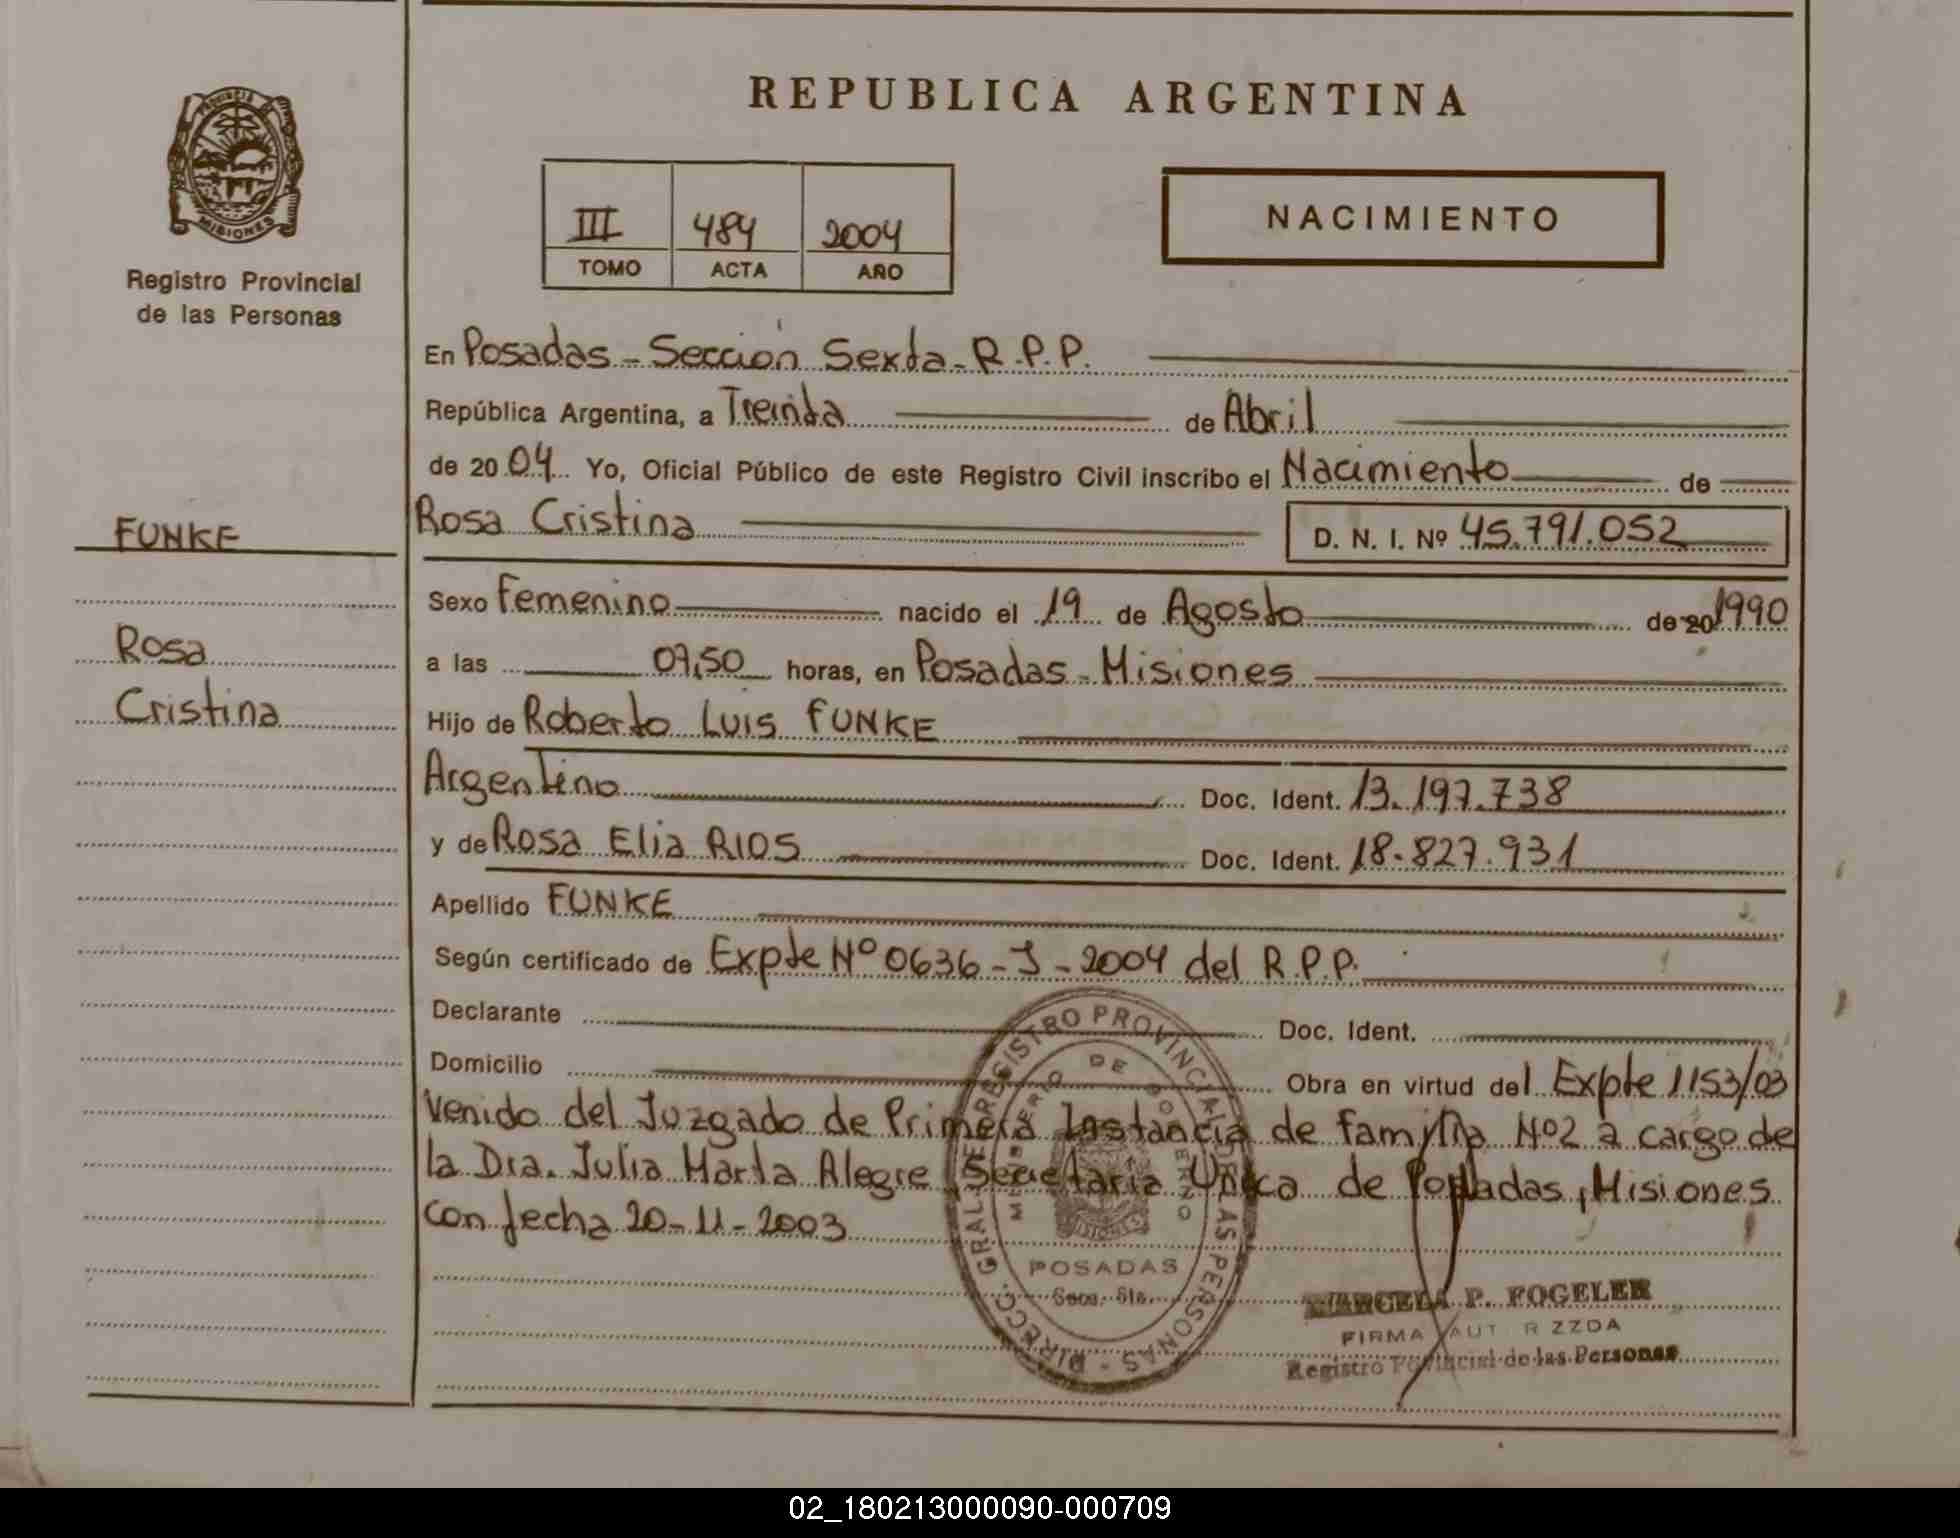 REPUBLICA ARGENTINA
PROVINCIA DE
MISIONES
Registro Provincial
de las Personas
III 484 2004
TOMO ACTA AÑO
NACIMIENTO
En Posadas - Sección Sexta - R.P.P.
República Argentina, a Treinta de Abril
de 20 04 Yo, Oficial Público de este Registro Civil inscribo el Nacimiento de
FUNKE
Rosa Cristina D. N. I. Nº 45.791.052
Sexo Femenino nacido el 19 de Agosto de 20 1990
Rosa
a las 07,50 horas, en Posadas - Misiones
Cristina
Hijo de Roberto Luis FUNKE
Argentino Doc. Ident. 13.197.738
y de Rosa Elia RIOS Doc. Ident. 18.827.931
Apellido FUNKE
Según certificado de Expte Nº 0636-J-2004 del R.P.P.
Declarante Doc. Ident.
Domicilio Obra en virtud del Expte 1153/03
Venido del Juzgado de Primera Instancia de familia Nº2 a cargo de
la Dra. Julia Marta Alegre, Secretaria Unica de Posadas, Misiones
con fecha 20-11-2003
DIRECC. GRAL. DE REGISTRO PROVINCIAL DE LAS PERSONAS
MINISTERIO DE GOBIERNO
POSADAS
MARCELA P. FOGELER
FIRMA AUT R ZZDA
Registro Provincial de las Personas
02_180213000090-000709